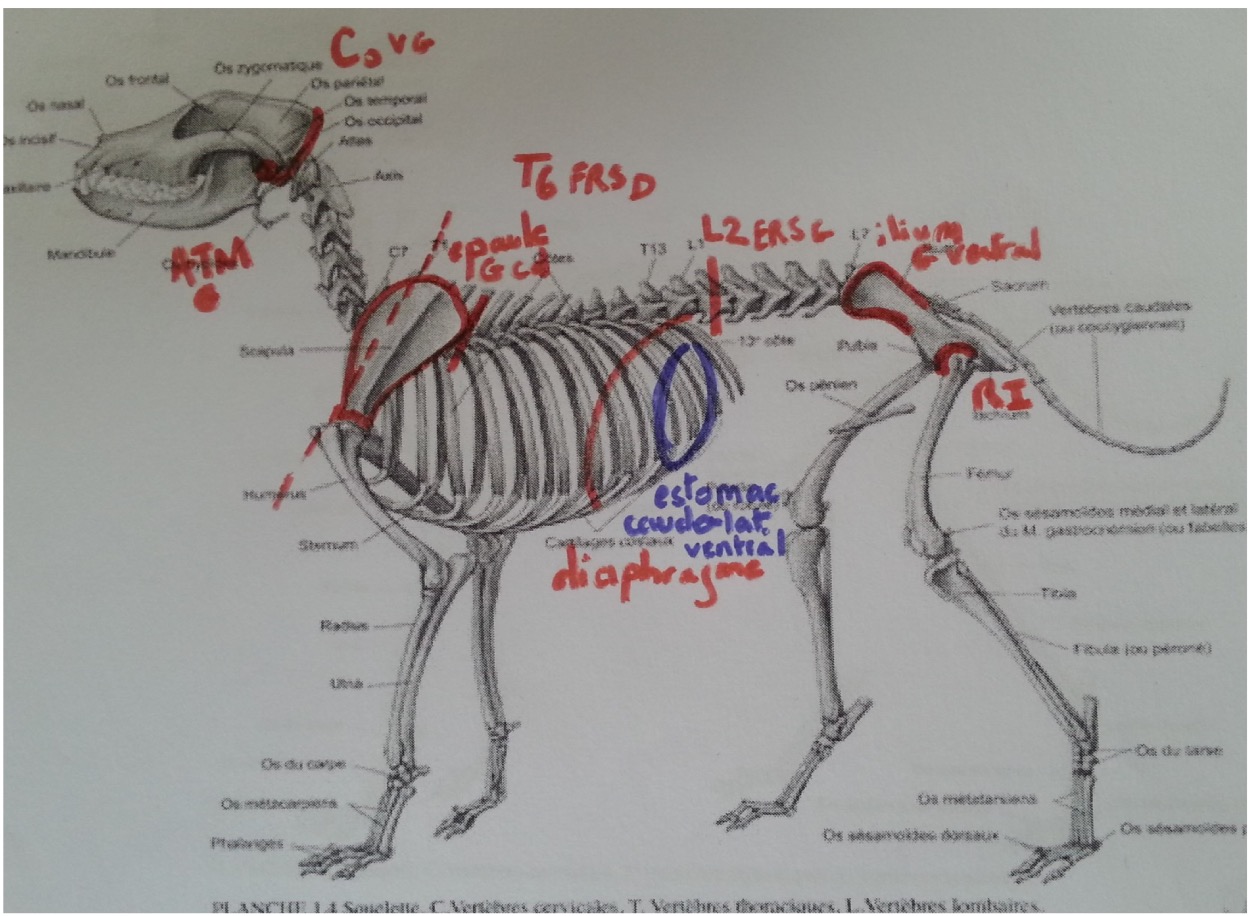 C0 VG
Os zygomatique
Os frontal
Os pariétal
Os nasal
Os temporal
Os incisif
Os occipital
Atlas
axillaire
Axis
T6 FRSD
Mandibule
ATM
C7
T1
epaule
G
Côtes
T13
L1
L2 ERSG
L7
ilium
ventral
Sacrum
Vertèbres caudales
(ou coccygiennes)
Scapula
13e côte
Pubis
Os pénien
RI
Ischium
Humérus
Fémur
estomac
caudo-lat
ventral
Os sésamoïdes médial et latéral
du M. gastrocnémien (ou fabelles
Sternum
Cartilages costaux
diaphragme
Tibia
Radius
Fibula (ou péroné)
Ulna
Os du carpe
Os du tarse
Os métacarpiens
Os métatarsiens
Phalanges
Os sésamoïdes dorsaux
Os sésamoïdes p
PLANCHE 1.4 Squelette. C.Vertèbres cervicales, T. Vertèbres thoraciques, L.Vertèbres lombaires.